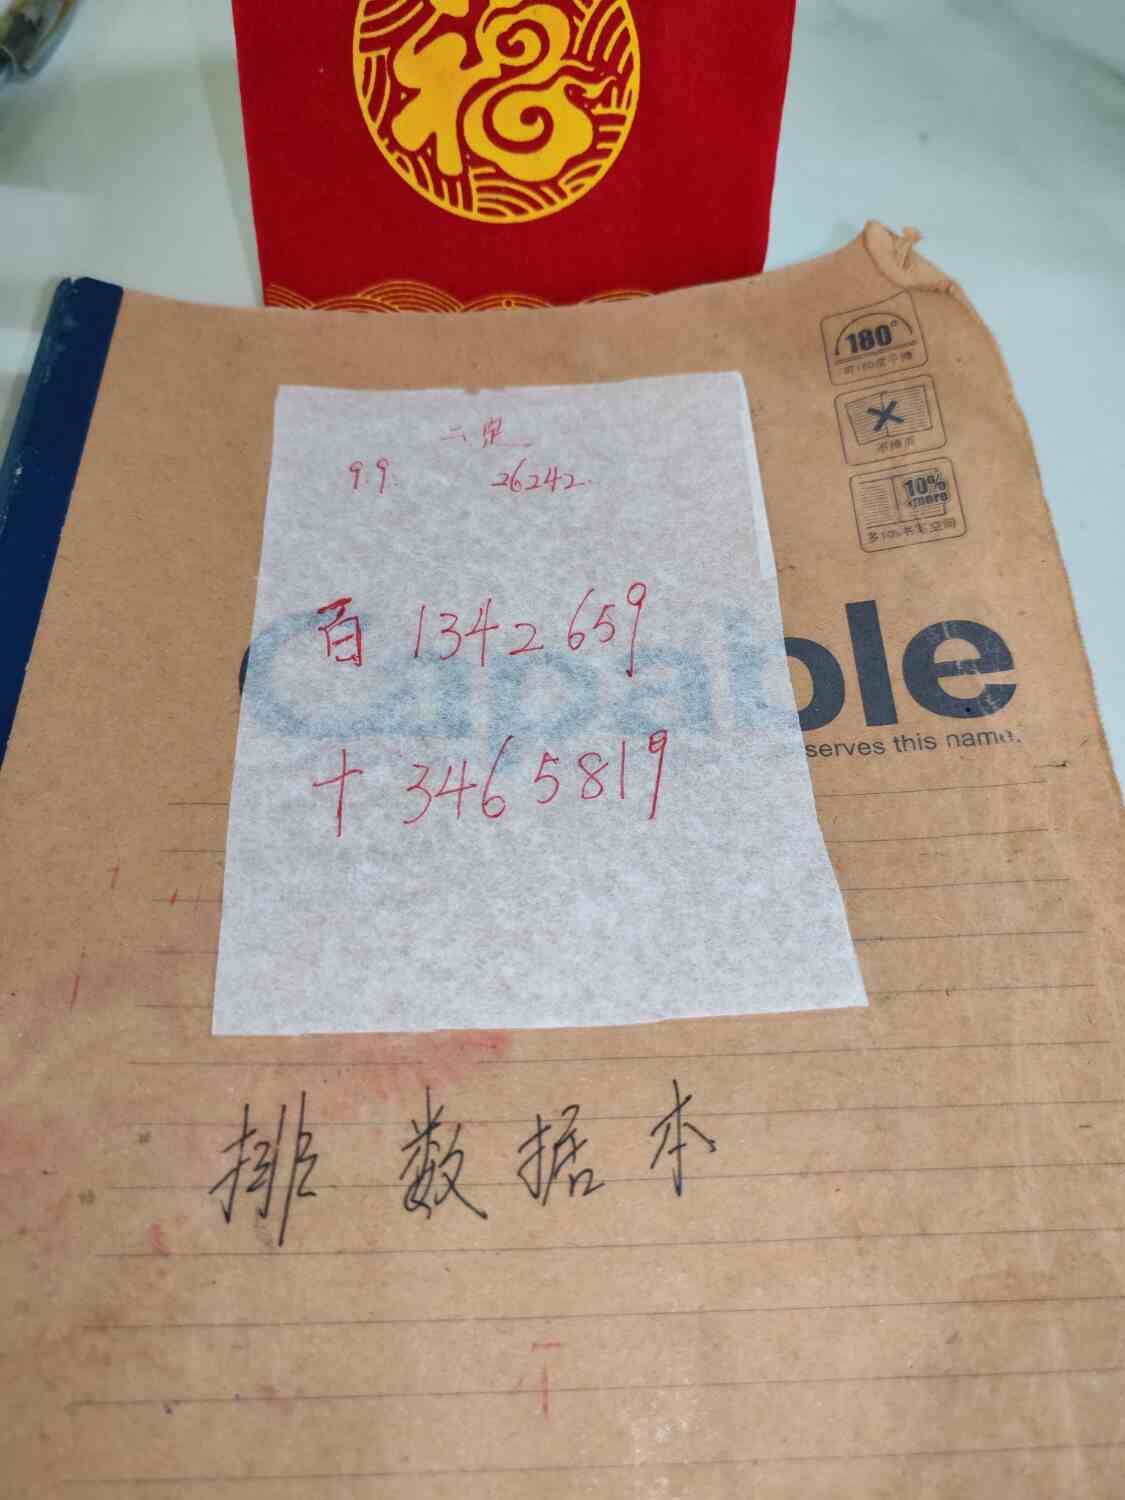 福
180°
可180度平摊
10%
more
多10%书写空间
二定
9.9. 26242.
百 1342659
十 3465819
Capable
serves this name.
排数据本